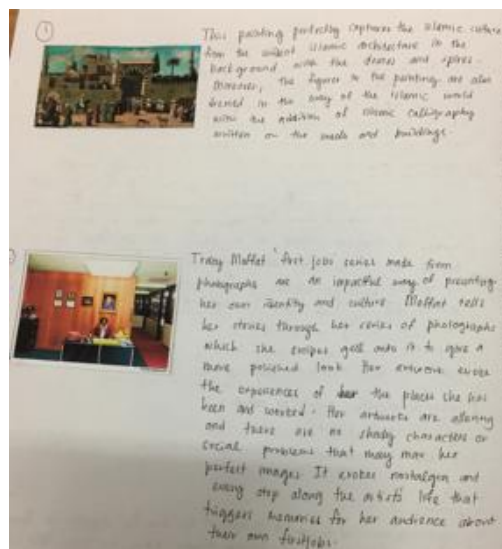 This painting perfectly captures the islamic culture
from the islamic architecture in the
background with the domes and spires.
Moreover, the figures in the painting are also
dressed in the way of the islamic world
with the addition of islamic calligraphy
written on the and buildings.
Tracey Moffat' first jobs series made from
photographs are an impactful way of presenting
her own identity and culture Moffat tells
her stories through her series of photographs
which she onto it to give a
more polished look Her evoke
the experiences of the places she has
been and worked. Her artworks are
and there are no shady characters or
social problems that may mar her
perfect images It evokes nostalgia and
every step along the artists' life that
triggers memories for her audience about
their own first jobs.